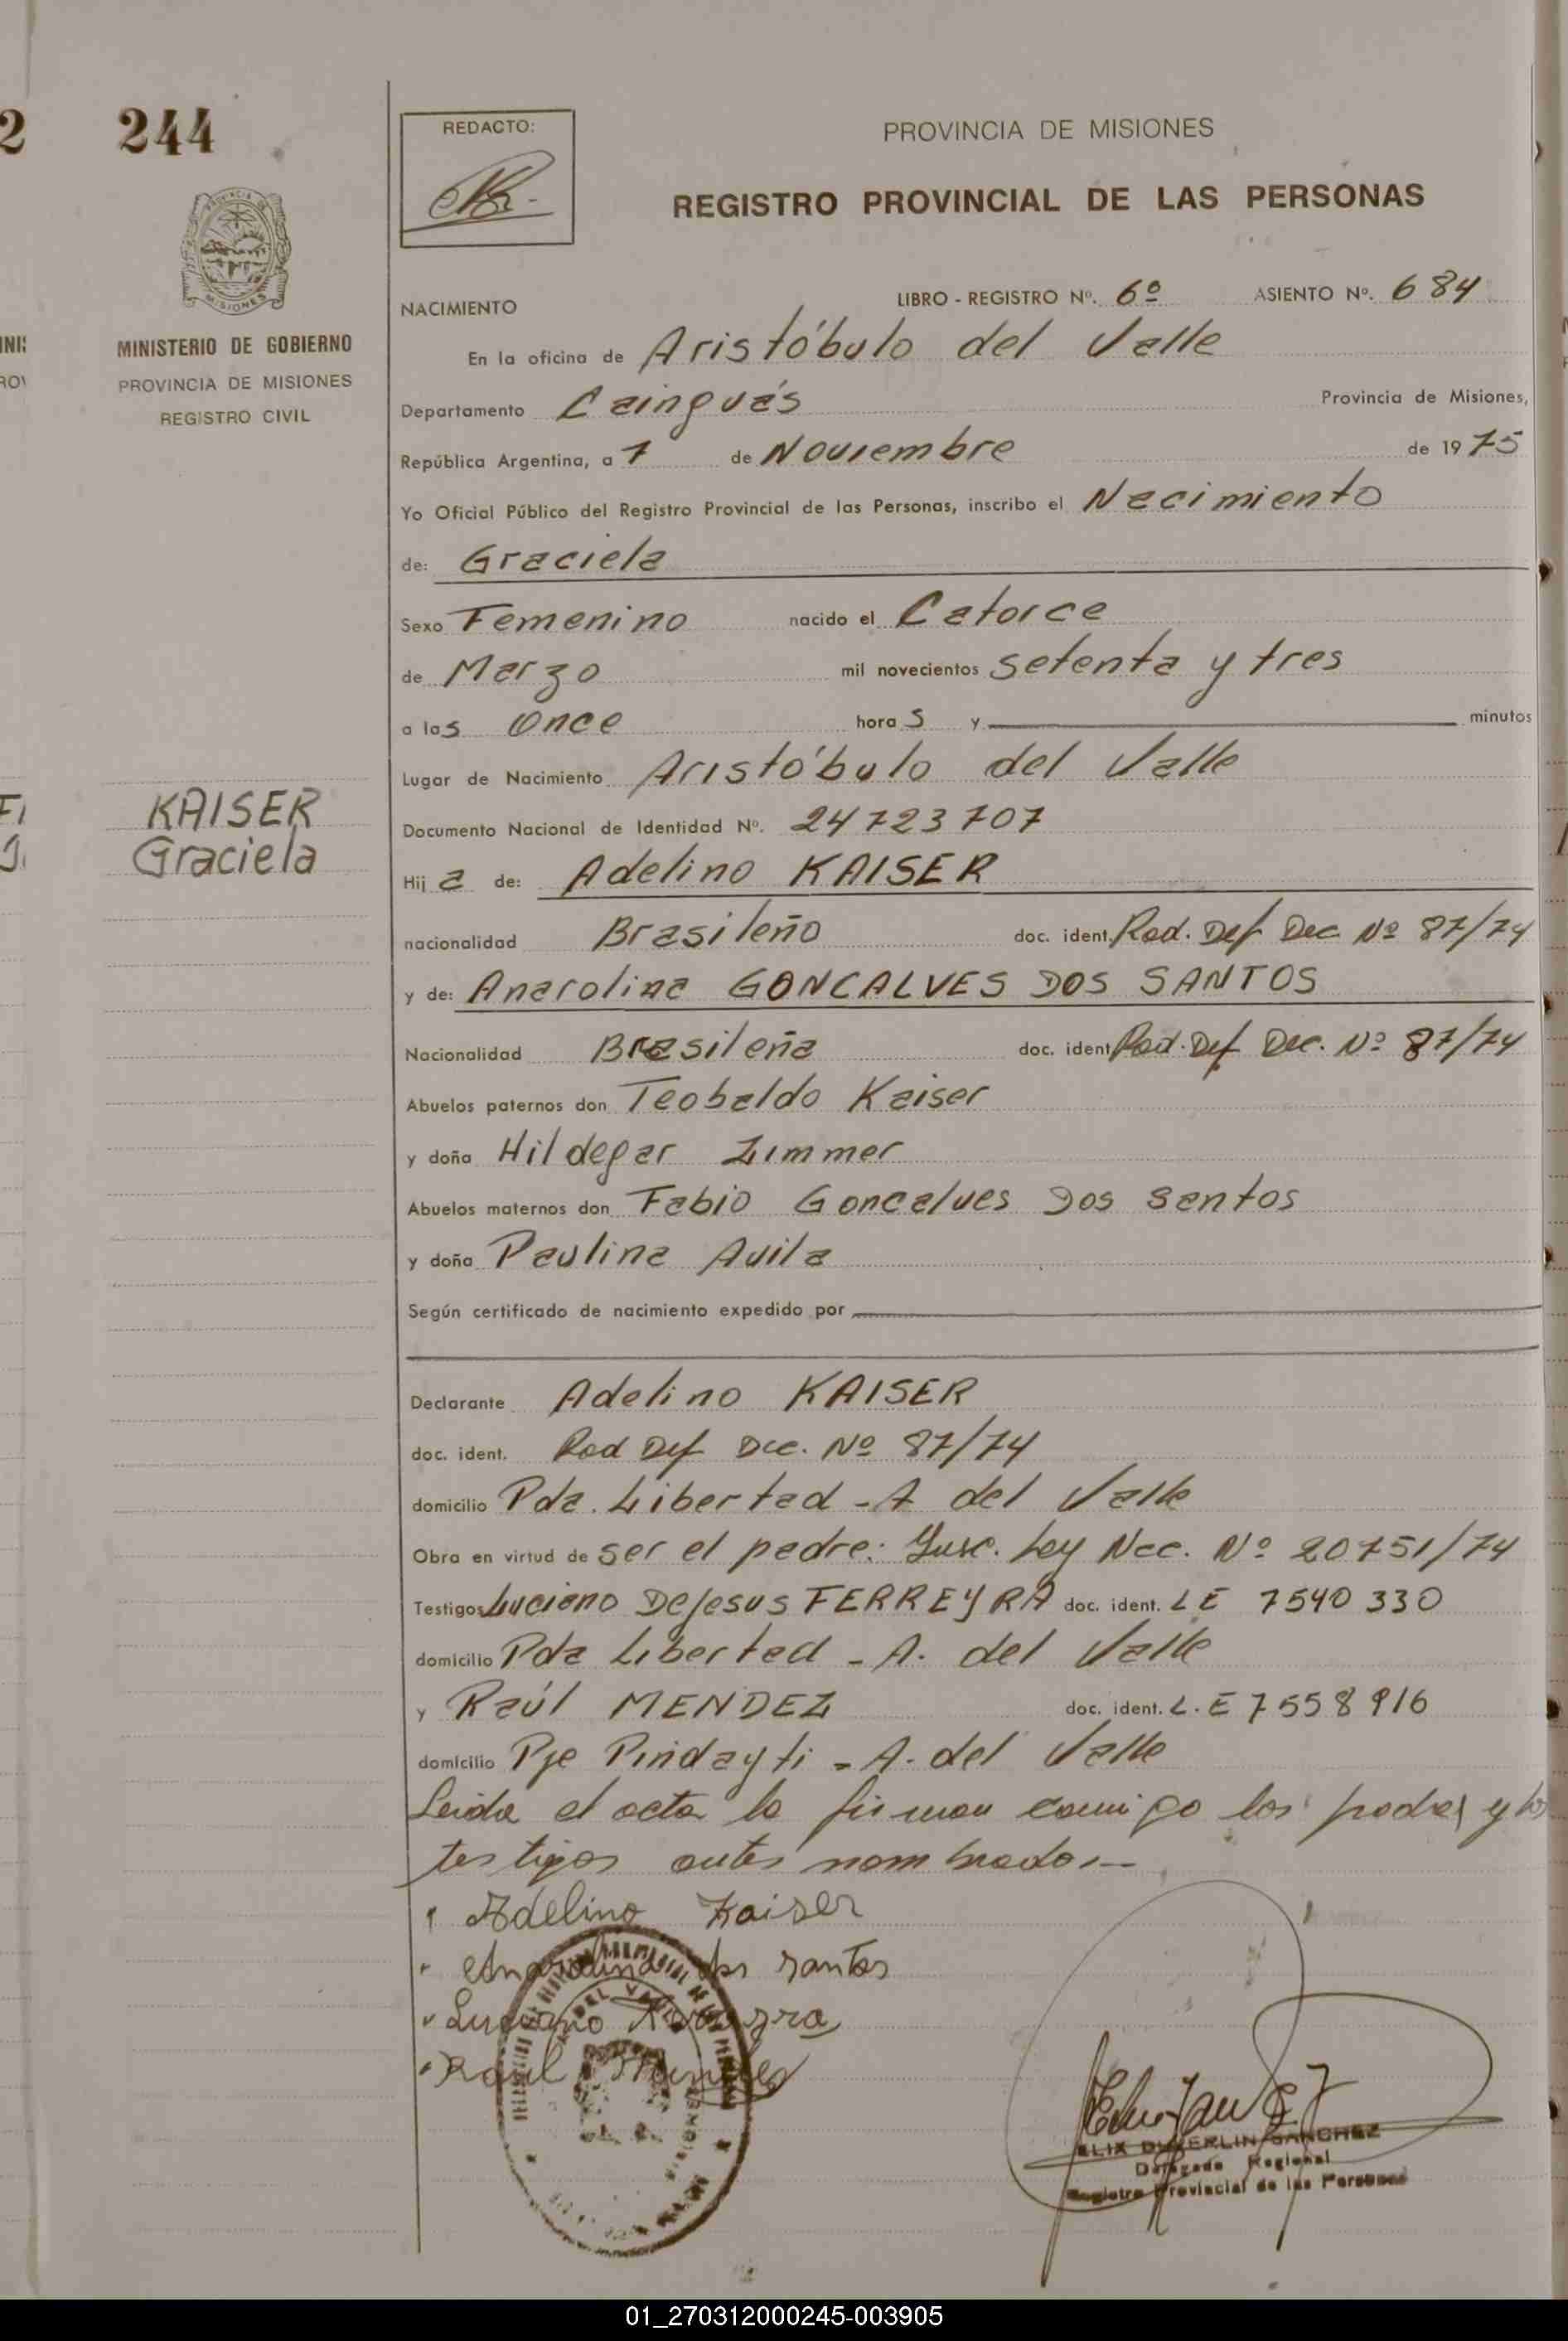 244
REDACTO:
PROVINCIA DE MISIONES
REGISTRO PROVINCIAL DE LAS PERSONAS
MISIONES
MINISTERIO DE GOBIERNO
PROVINCIA DE MISIONES
REGISTRO CIVIL
KAISER
Graciela
NACIMIENTO LIBRO - REGISTRO Nº. 6º ASIENTO Nº. 684
En la oficina de Aristóbulo del Valle
Departamento Cainguás Provincia de Misiones,
República Argentina, a 7 de Noviembre de 1975
Yo Oficial Público del Registro Provincial de las Personas, inscribo el Nacimiento
de: Graciela
Sexo Femenino nacido el Catorce
de Marzo mil novecientos setenta y tres
a las once horas y minutos
Lugar de Nacimiento Aristóbulo del Valle
Documento Nacional de Identidad Nº. 24723707
Hija de: Adelino KAISER
nacionalidad Brasileño doc. ident. Rad. Def Dec Nº 87/74
y de: Anarolina GONCALVES DOS SANTOS
Nacionalidad Brasileña doc. ident Rad. Def Dec. Nº 87/74
Abuelos paternos don Teobaldo Kaiser
y doña Hildegar Zimmer
Abuelos maternos don Fabio Goncalves Dos Santos
y doña Paulina Avila
Según certificado de nacimiento expedido por
Declarante Adelino KAISER
doc. ident. Rad Def Dec. Nº 87/74
domicilio Pda. Libertad - A del Valle
Obra en virtud de ser el padre: Insc. Ley Nac. Nº 20751/74
Testigos Luciano Dejesus FERREYRA doc. ident. LE 7540330
domicilio Pda Libertad - A. del Valle
y Raúl MENDEZ doc. ident. L.E 7558916
domicilio Pje Pindayti - A. del Valle
Leida el acta la firman comigo los padres y los
testigos antes nombrados
Adelino Kaiser
Anarolina dos santos
Luciano Ferreyra
Raul Mendez
SANCHEZ
Delegado Regional
Registro Provincial de las Personas
01_270312000245-003905